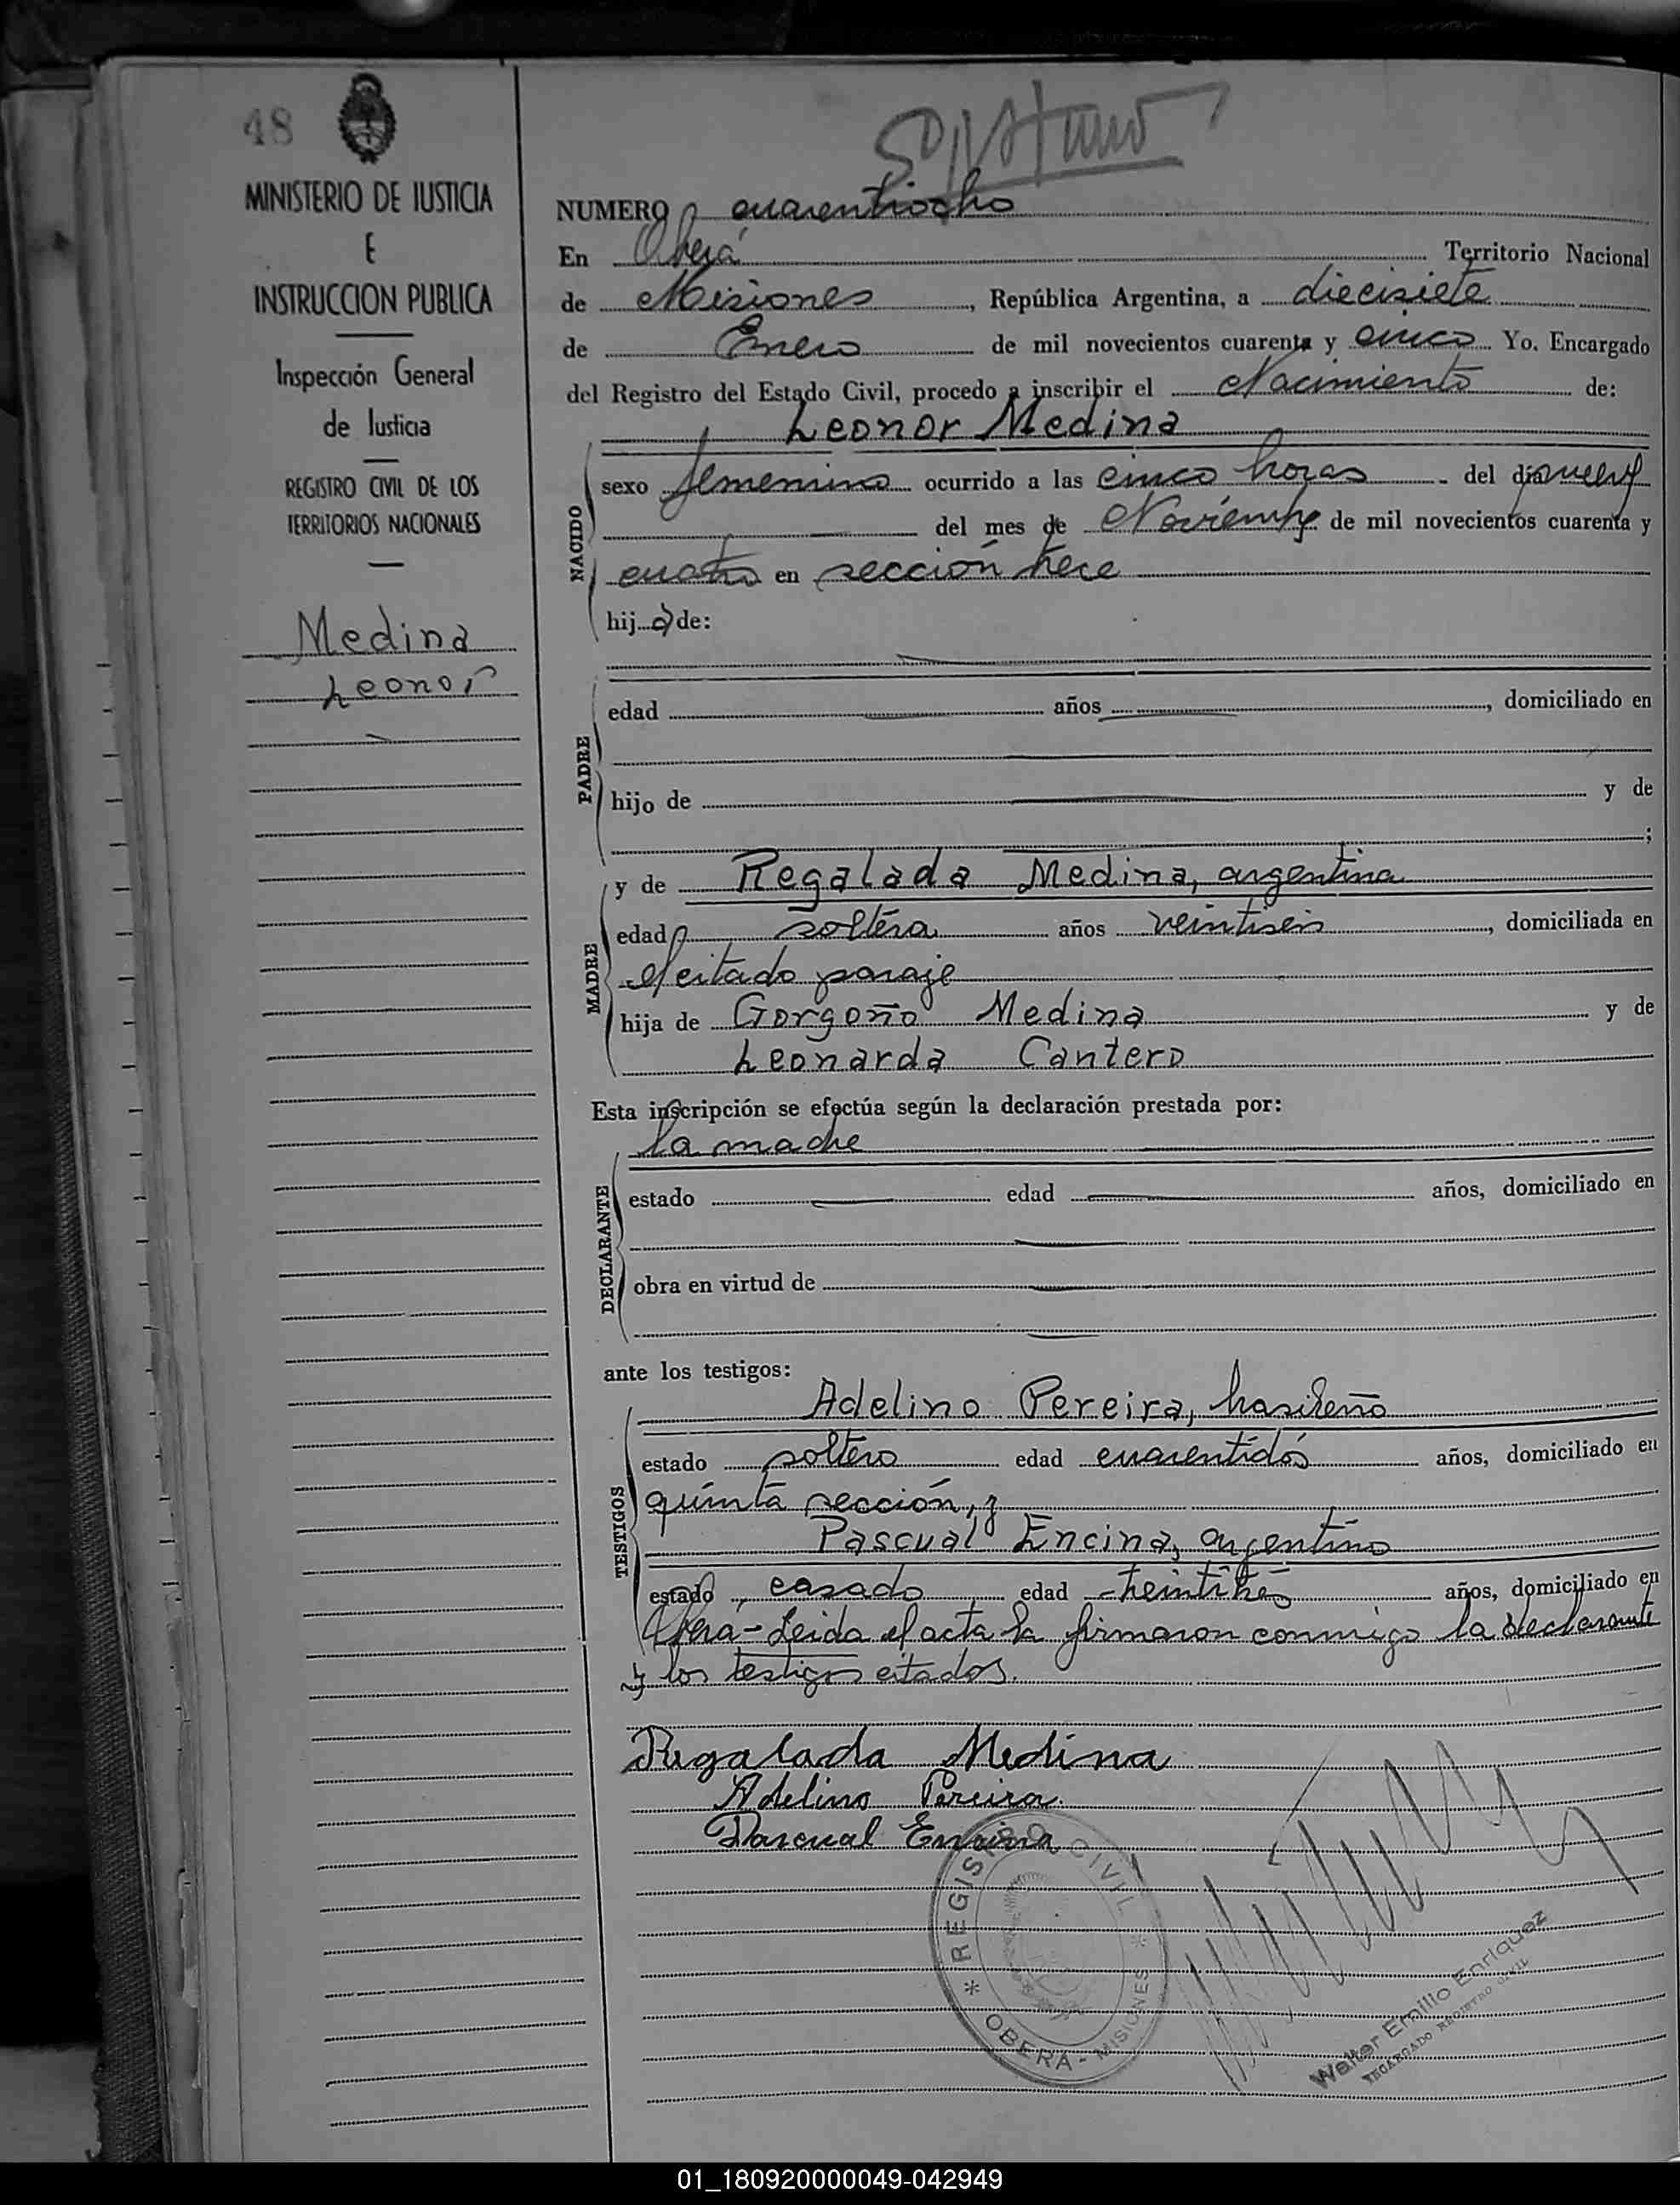 48
MINISTERIO DE JUSTICIA
E
INSTRUCCION PUBLICA
Inspección General
de Justicia
REGISTRO CIVIL DE LOS
TERRITORIOS NACIONALES
Medina
Leonor
NUMERO cuarentiocho
En Oberá Territorio Nacional
de Misiones, República Argentina, a diecisiete
de Enero de mil novecientos cuarenta y cinco Yo, Encargado
del Registro del Estado Civil, procedo a inscribir el Nacimiento de:
Leonor Medina
NACIDO
sexo femenino ocurrido a las cinco horas del día nueve
del mes de Noviembre de mil novecientos cuarenta y
cuatro en sección trece
hij a de:
PADRE
edad años , domiciliado en
hijo de y de
;
MADRE
y de Regalada Medina, argentina
edad soltera años veintiseis, domiciliada en
el citado paraje
hija de Gorgoño Medina y de
Leonarda Cantero
Esta inscripción se efectúa según la declaración prestada por:
la madre
DECLARANTE
estado edad años, domiciliado en
obra en virtud de
ante los testigos:
TESTIGOS
Adelino Pereira, brasileño
estado soltero edad cuarentidós años, domiciliado en
quinta sección, y
Pascual Encina, argentino
estado casado edad treintitrés años, domiciliado en
Oberá - Leida el acta la firmaron conmigo la declarante
y los testigos citados.
Regalada Medina
Adelino Pereira
Pascual Encina
* REGISTRO CIVIL *
OBERA - MISIONES
Walter Emilio Enriquez
ENCARGADO REGISTRO CIVIL
01_180920000049-042949